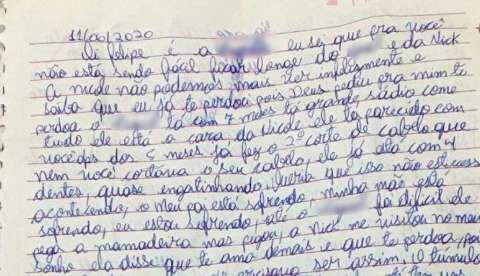 11/00/2020
Oi felipe é a eu sei que era você
não está sendo fácil ficar longe do e da Nick
a nicole não podemos mais ver infelizmente e
saiba que eu já te perdoei pois Deus pediu era mim te
perdoa o ta com 7 meses ta grande sádio come
tudo ele está a cara da Nicole ele ta parecido com
vocês dos 5 meses já fez o 2º corte de cabelo que
nem você cortava o seu cabelo, ele já ata com 4
dentes quase engatinhando, queria que isso não estivesse
acontecendo, o meu pai está sofrendo, minha mãe está
sofrendo, eu estou sofrendo, até o foi difícil ele
pega a mamadeira mas pegou, a Nick me visitou no meu
sonho ela disse que te ama demais e que te perdoa, por
ser assim. O túmulo